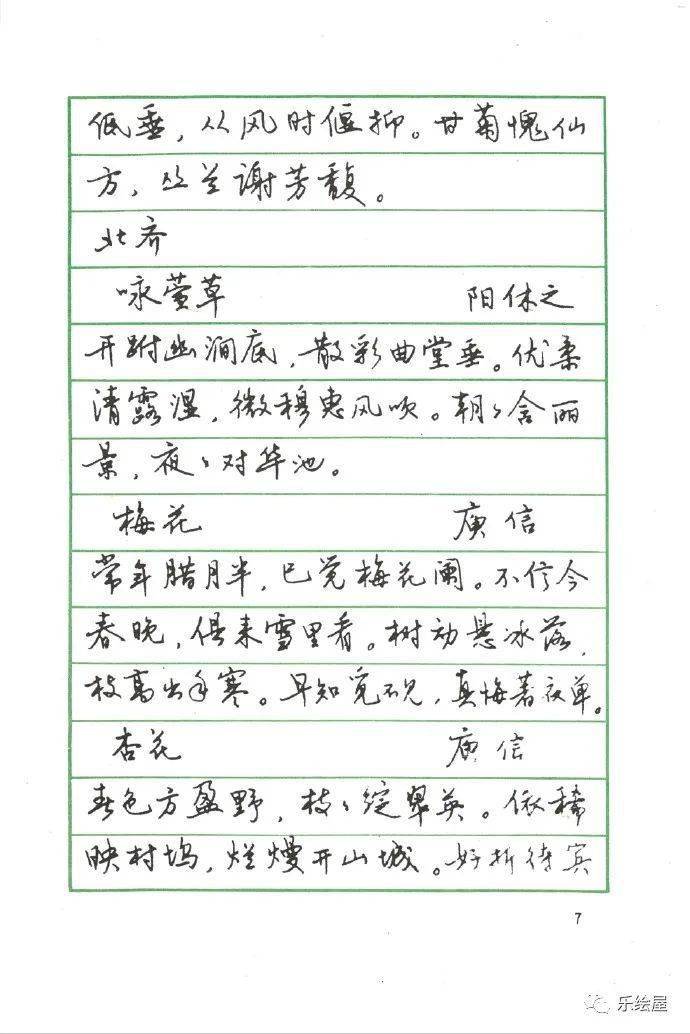 低垂，从风时偃抑。甘菊愧仙
方，丛兰谢芳馥。
北齐
咏萱草 阳休之
开跗幽涧底，散彩曲堂垂。优柔
清露湿，微穆惠风吹。朝〻含丽
景，夜〻对华池。
梅花 庾信
常年腊月半，已觉梅花阑。不信今
春晚，俱来雪里看。树动悬冰落，
枝高出手寒。早知觅不见，真悔著衣单。
杏花 庾信
春色方盈野，枝〻绽翠英。依稀
映村坞，烂熳开山城。好折待宾
7
乐绘屋